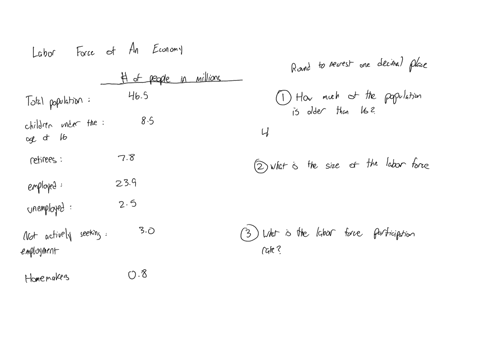 Labor Force of An Economy
# of people in millions
Total population: 46.5
children under the age of 16: 8.5
retirees: 7.8
employed: 23.9
unemployed: 2.5
Not actively seeking employment: 3.0
Homemakers 0.8
Round to nearest one decimal place
1 How much of the population
is older than 16?
4
2 what is the size of the labor force
3 What is the labor force participation
rate?